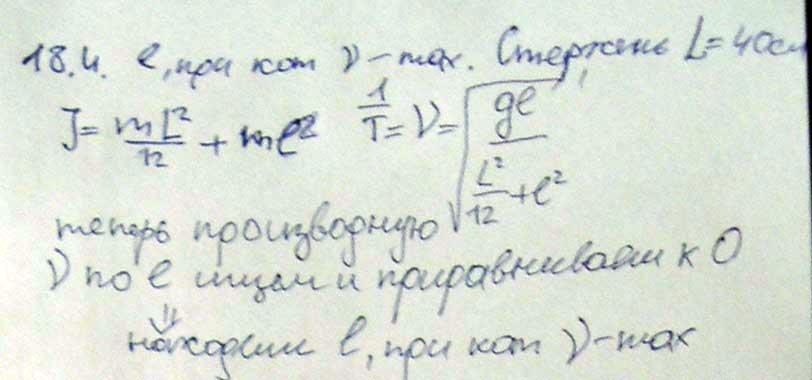 18.4. l, при кот ν-max. Стержень L=40см
J = mL²/12 + ml² 1/T = ν = √(gl/(L²/12 + l²))
теперь производную
ν по l ищем и приравниваем к 0
⇓
находим l, при кот ν-max